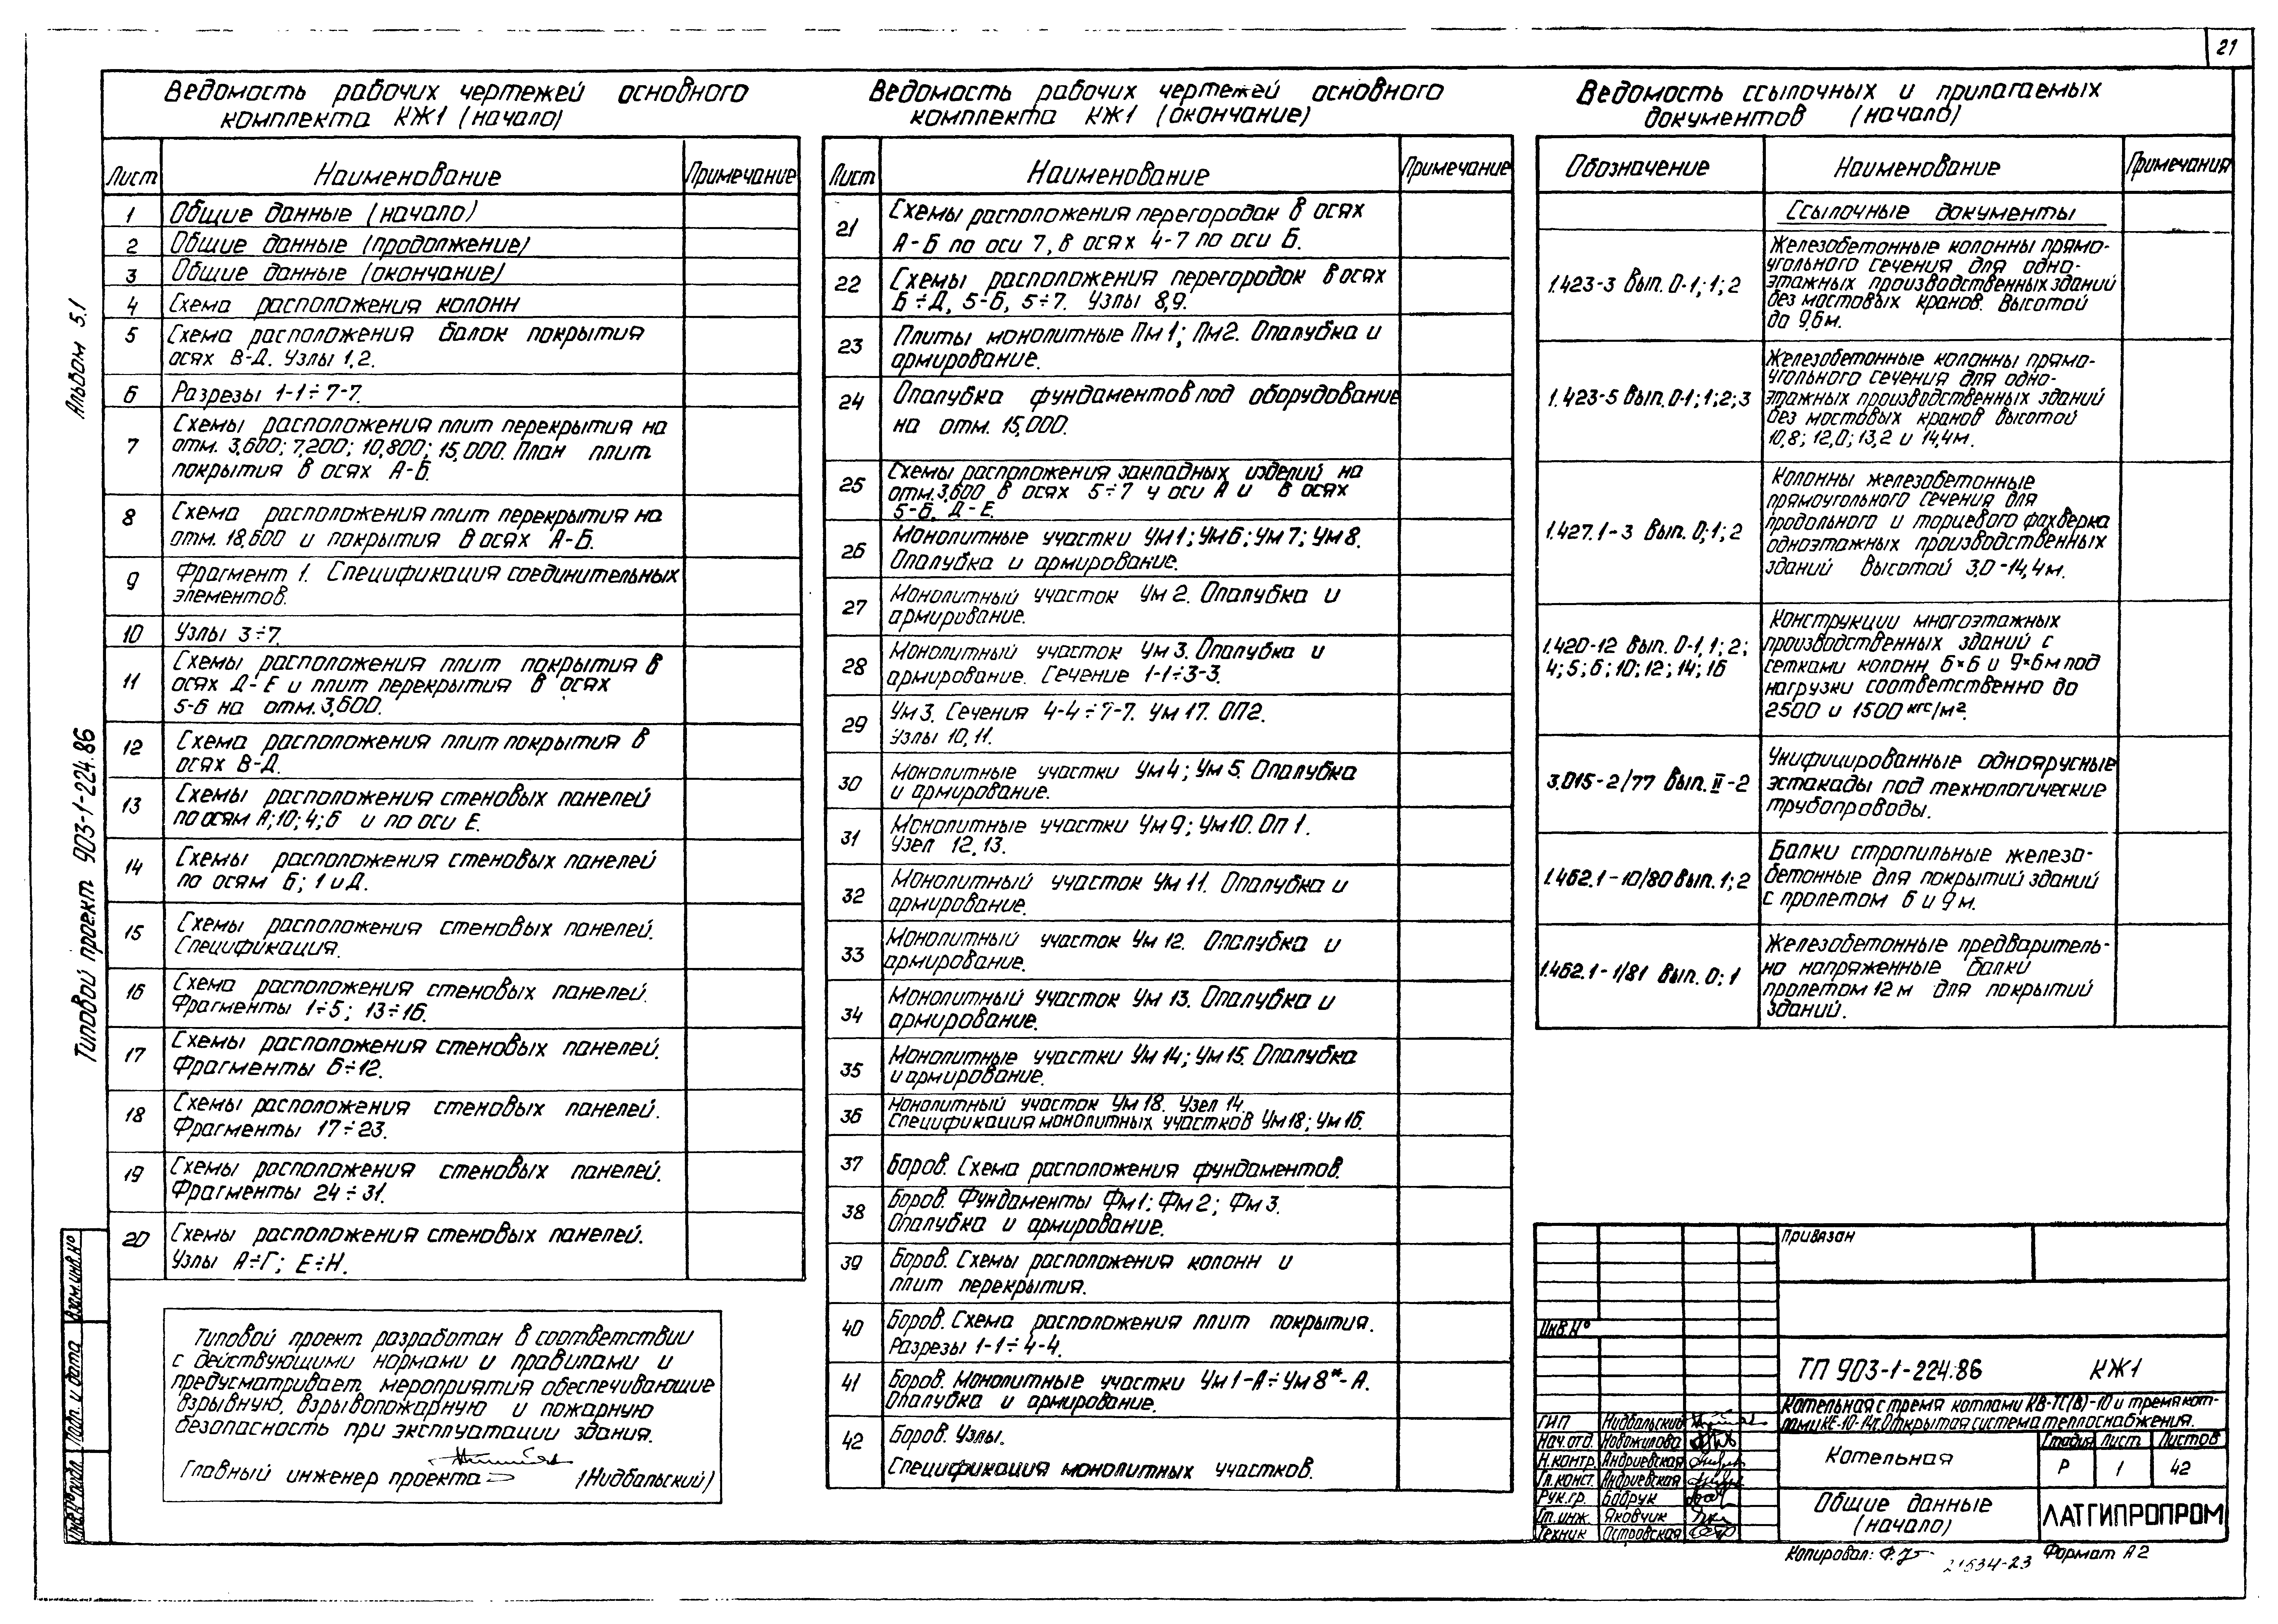 21
Альбом 5.1
Типовой проект 903-1-224.86
Ведомость рабочих чертежей основного
комплекта КЖ1 (начало)
Лист Наименование Примечание
1 Общие данные (начало)
2 Общие данные (продолжение)
3 Общие данные (окончание)
4 Схема расположения колонн
5 Схема расположения балок покрытия
осях В-Д. Узлы 1,2.
6 Разрезы 1-1÷7-7.
7 Схемы расположения плит перекрытия на
отм. 3,600; 7,200; 10,800; 15,000. План плит
покрытия в осях А-Б.
8 Схема расположения плит перекрытия на
отм. 18,600 и покрытия в осях А-Б.
9 Фрагмент 1. Спецификация соединительных
элементов.
10 Узлы 3÷7.
11 Схемы расположения плит покрытия в
осях Д-Е и плит перекрытия в осях
5-6 на отм. 3,600.
12 Схема расположения плит покрытия в
осях В-Д.
13 Схемы расположения стеновых панелей
по осям А; 10; 4; 6 и по оси Е.
14 Схемы расположения стеновых панелей
по осям Б; 1 и Д.
15 Схемы расположения стеновых панелей.
Спецификация.
16 Схема расположения стеновых панелей.
Фрагменты 1÷5; 13÷16.
17 Схемы расположения стеновых панелей.
Фрагменты 6÷12.
18 Схемы расположения стеновых панелей.
Фрагменты 17÷23.
19 Схемы расположения стеновых панелей.
Фрагменты 24÷31.
20 Схемы расположения стеновых панелей.
Узлы А÷Г; Е÷Н.
Типовой проект разработан в соответствии
с действующими нормами и правилами и
предусматривает мероприятия обеспечивающие
взрывную, взрывопожарную и пожарную
безопасность при эксплуатации здания.
Главный инженер проекта (Нидбальский)
Ведомость рабочих чертежей основного
комплекта КЖ1 (окончание)
Лист Наименование Примечание
21 Схемы расположения перегородок в осях
А-Б по оси 7, в осях 4-7 по оси Б.
22 Схемы расположения перегородок в осях
Б÷Д, 5-6, 5÷7. Узлы 8,9.
23 Плиты монолитные Пм1; Пм2. Опалубка и
армирование.
24 Опалубка фундаментов под оборудование
на отм. 15,000.
25 Схемы расположения закладных изделий на
отм. 3,600 в осях 5÷7 у оси А и в осях
5-6, Д-Е.
26 Монолитные участки Ум1; Ум6; Ум7; Ум8.
Опалубка и армирование.
27 Монолитный участок Ум2. Опалубка и
армирование.
28 Монолитный участок Ум3. Опалубка и
армирование. Сечение 1-1÷3-3.
29 Ум3. Сечения 4-4÷7-7. Ум17. ОП2.
Узлы 10, 11.
30 Монолитные участки Ум4; Ум5. Опалубка
и армирование.
31 Монолитные участки Ум9; Ум10. Оп1.
Узел 12, 13.
32 Монолитный участок Ум11. Опалубка и
армирование.
33 Монолитный участок Ум12. Опалубка и
армирование.
34 Монолитный участок Ум13. Опалубка и
армирование.
35 Монолитные участки Ум14; Ум15. Опалубка
и армирование.
36 Монолитный участок Ум18. Узел 14.
Спецификация монолитных участков Ум18; Ум16.
37 Боров. Схема расположения фундаментов.
38 Боров. Фундаменты Фм1; Фм2; Фм3.
Опалубка и армирование.
39 Боров. Схемы расположения колонн и
плит перекрытия.
40 Боров. Схема расположения плит покрытия.
Разрезы 1-1÷4-4.
41 Боров. Монолитные участки Ум1-А÷Ум8*-А.
Опалубка и армирование.
42 Боров. Узлы.
Спецификация монолитных участков.
Ведомость ссылочных и прилагаемых
документов (начало)
Обозначение Наименование Примечания
Ссылочные документы
1.423-3 Вып. 0-1; 1; 2 Железобетонные колонны прямо-
угольного сечения для одно-
этажных производственных зданий
без мостовых кранов. Высотой
до 9,6м.
1.423-5 Вып. 0-1; 1; 2; 3 Железобетонные колонны прямо-
угольного сечения для одно-
этажных производственных зданий
без мостовых кранов высотой
10,8; 12,0; 13,2 и 14,4м.
1.427.1-3 Вып. 0; 1; 2 Колонны железобетонные
прямоугольного сечения для
продольного и торцевого фахверка
одноэтажных производственных
зданий высотой 3,0-14,4м.
1.420-12 Вып. 0-1, 1; 2;
4; 5; 6; 10; 12; 14; 16
Конструкции многоэтажных
производственных зданий с
сетками колонн 6×6 и 9×6м под
нагрузки соответственно до
2500 и 1500 кгс/м².
3.015-2/77 Вып. II-2 Унифицированные одноярусные
эстакады под технологические
трубопроводы.
1.462.1-10/80 Вып. 1; 2 Балки стропильные железо-
бетонные для покрытий зданий
с пролетом 6 и 9м.
1.462.1-1/81 Вып. 0; 1 Железобетонные предваритель-
но напряженные балки
пролетом 12м для покрытий
зданий.
Привязан
Инв.№
ТП 903-1-224.86 КЖ1
Котельная с тремя котлами КВ-ТС(В)-10 и тремя кот-
лами КЕ-10-14г. Открытая система теплоснабжения.
ГИП Нидбальский
Нач.отд. Новожилова
Н.контр. Андриевская
Гл.конст. Андриевская
Рук.гр. Бабрук
Ст.инж. Яковчик
Техник Островская
Котельная
Стадия Лист Листов
Р 1 42
Общие данные
(начало)
ЛАТГИПРОПРОМ
Копировал: Формат А2
21534-23
Взам.инв.№
Подп. и дата
Инв.№ подл.